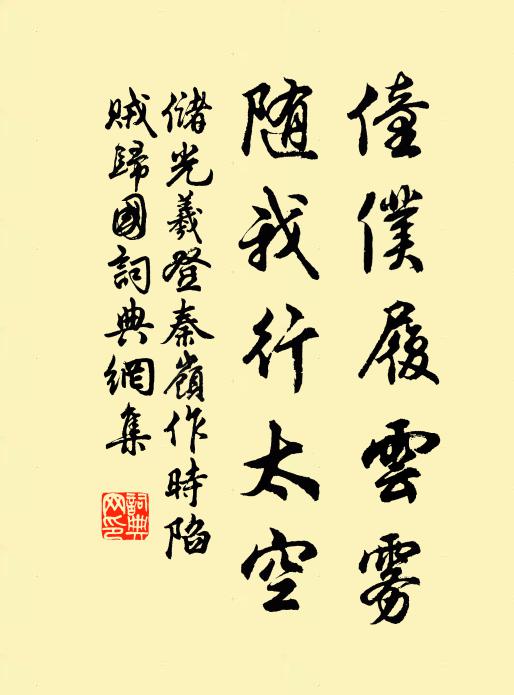 僮僕履雲雾
随我行太空
儲光羲登秦嶺作時陷
賊歸國詞典網集
詞典
网印